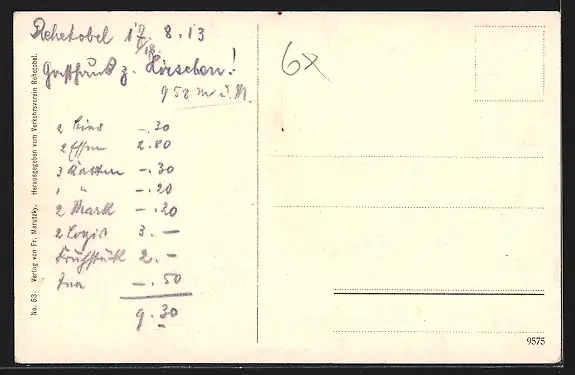 Rehetobel 17./18. 8. 13
Gasthaus z. Hirschen!
958 m ü. M.
2 Bier -.30
2 Essen 2.80
3 Karten -.30
1 " -.20
2 Mark -.20
2 Logis 3.-
Frühstück 2.-
-.50
9.30
6x
No. 53. Verlag von Fr. Marutzky. Herausgegeben vom Verkehrsverein Rehetobel.
9575